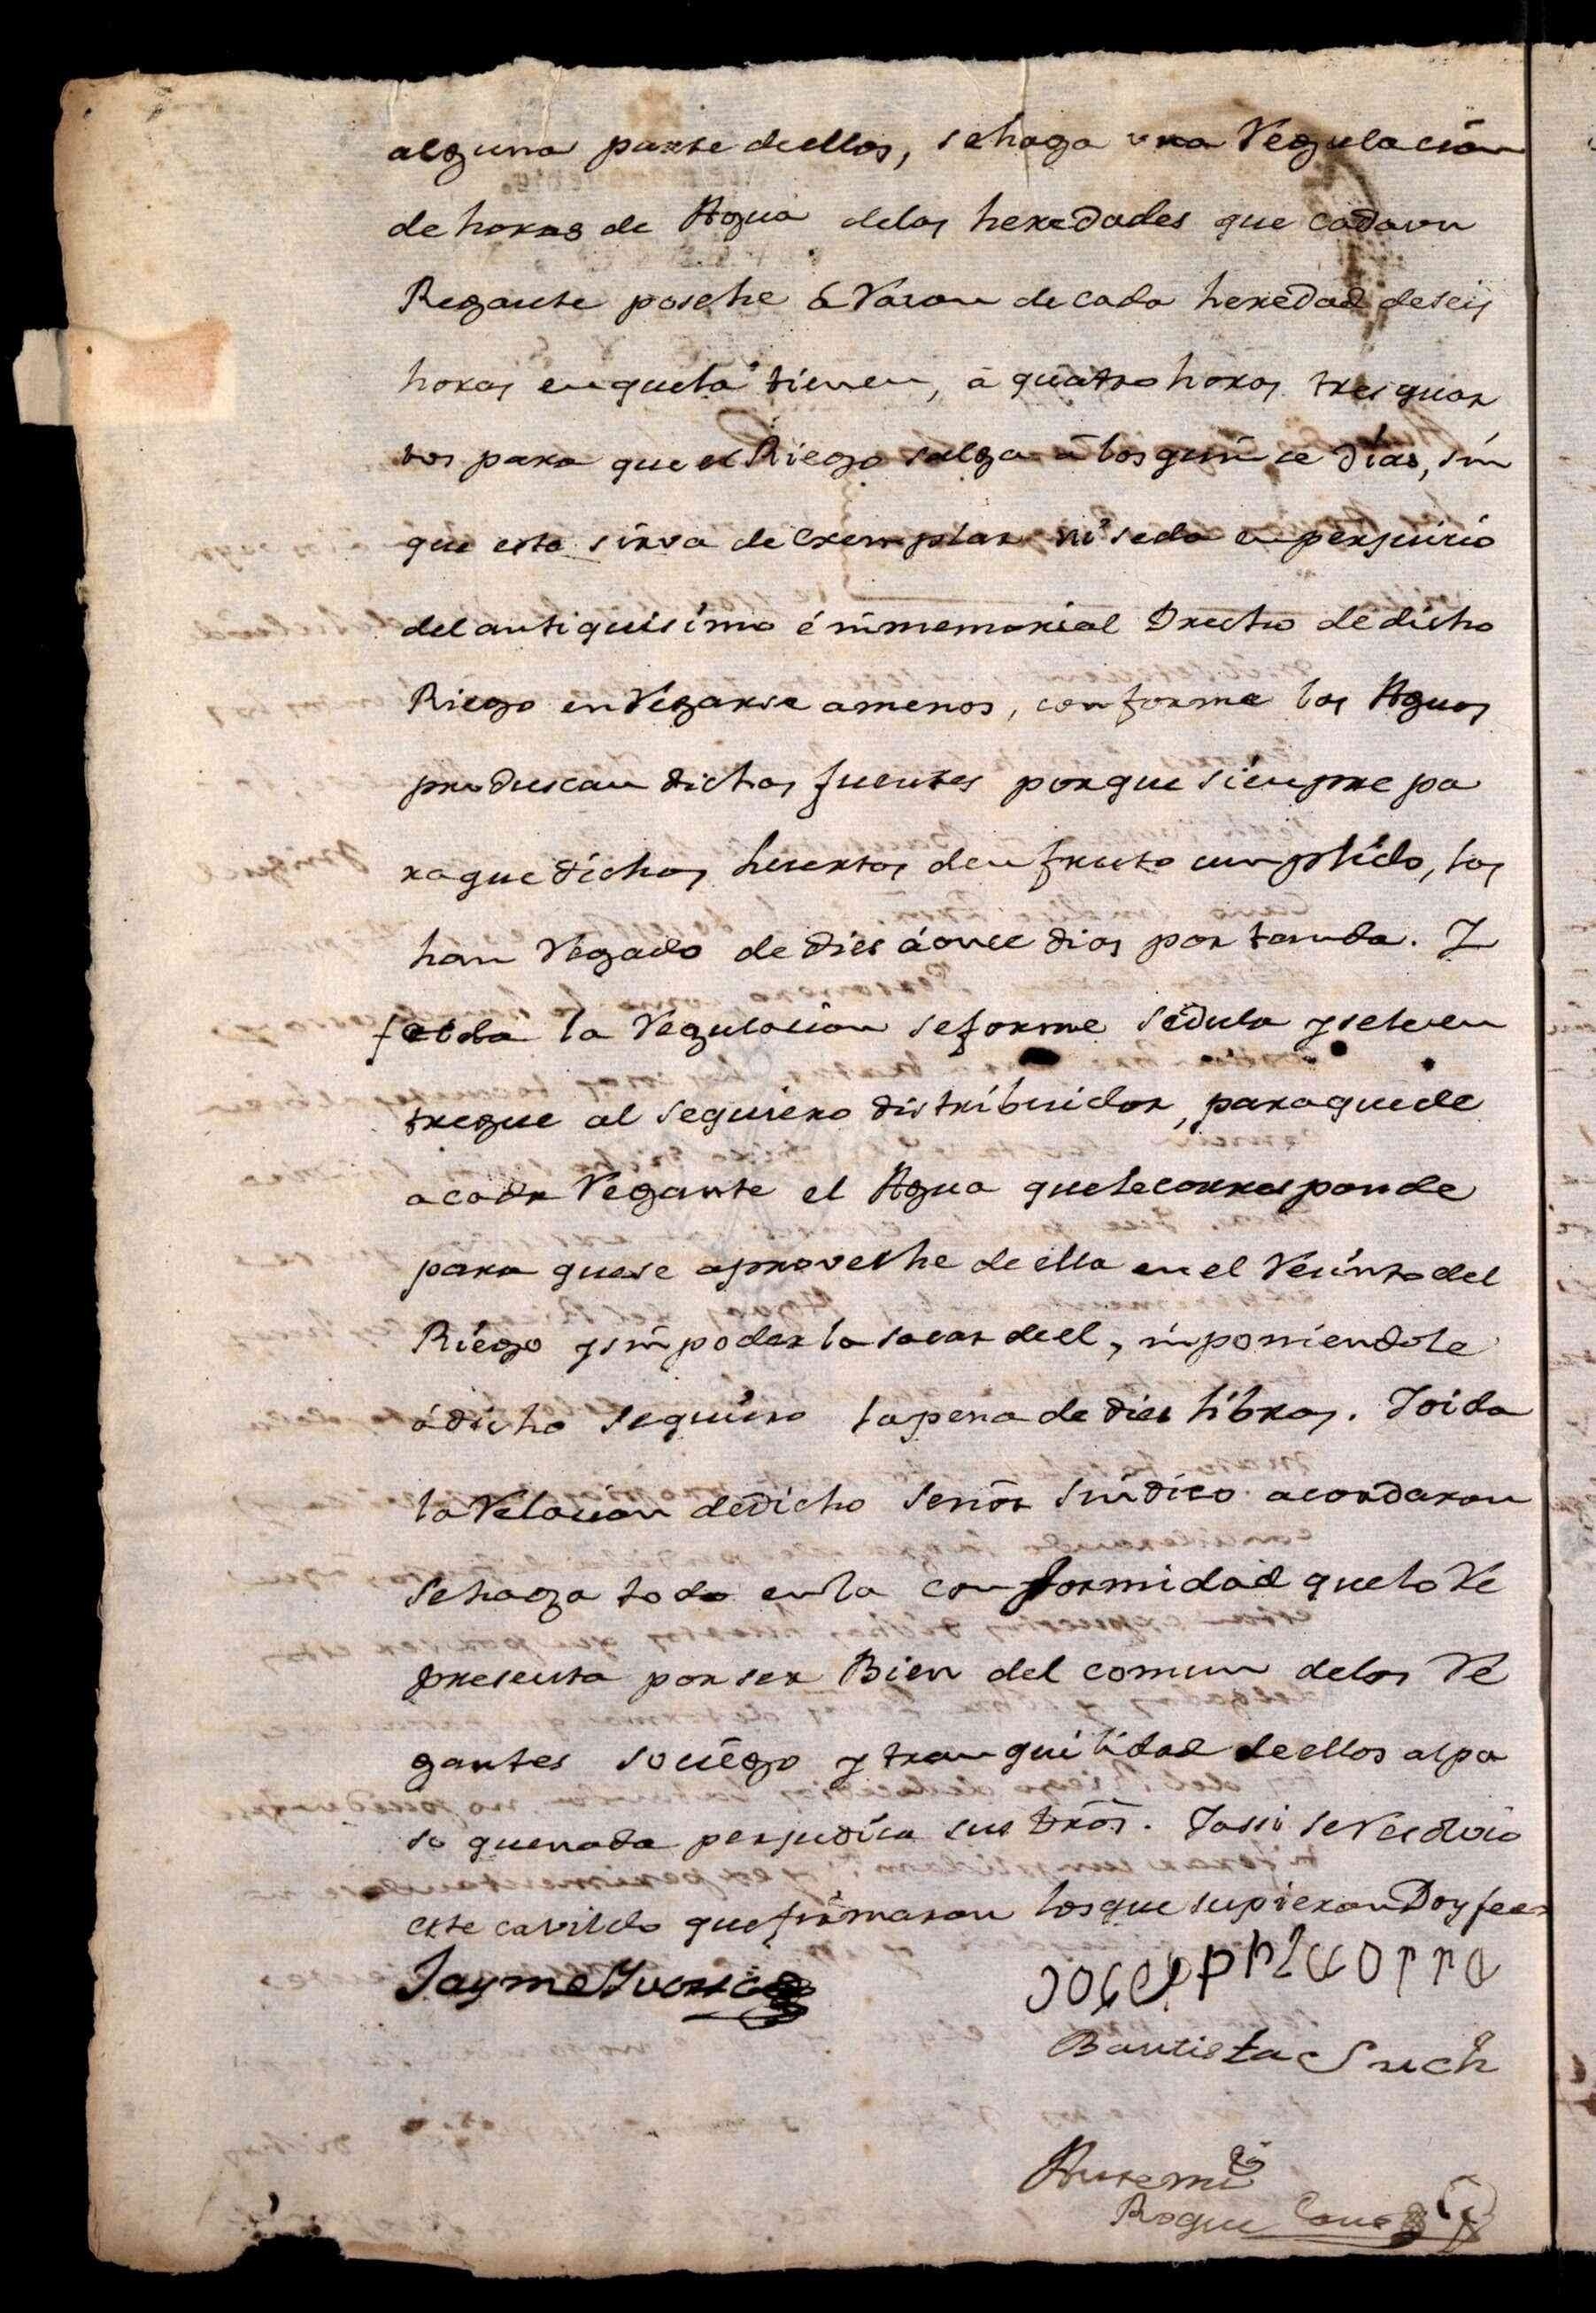 alguna parte deellos, sehaga una Regulacion
de horas de Agua delas heredades que cadaun
Regante posehe à Razon decada heredad deseis
horas enquela tienen, à quatro horas tresquar
tos para que el Riego salga à los quinse dias, sin
que esto sirva de Exemplar ni seda en perjuicio
del antiquisimo é inmemorial Drecho dedicho
Riego enRegarse amenos, conforme las Aguas
produscan dichas fuentes porque siempre pa
raque dichos huertos den fruto cumplido, los
han Regado de dies áonce dias por tanda. Y
fecha la Regulacion seforme sedula yseleen
tregue al sequiero distribuidor, paraquede
acada Regante el Agua quelecorresponde
para quese aproveche deella en el Resinto del
Riego ysin poderla sacar deel, inponiendole
ádicho sequiero lapena de dies libras. Yoida
la Relacion dedicho señor sindico acordaron
sehaga todo enla conformidad quelo Re
presenta por ser Bien del comun delos Re
gantes sociego y tranquilidad deellos alpa
so quenada perjudica sus drōs. Yassi seResolvio
este cavildo quefirmaron losque supieron Doyfee=
Jayme Yvorra
Joseph Llorra
Bautista Such
Antemi
Roque Cano